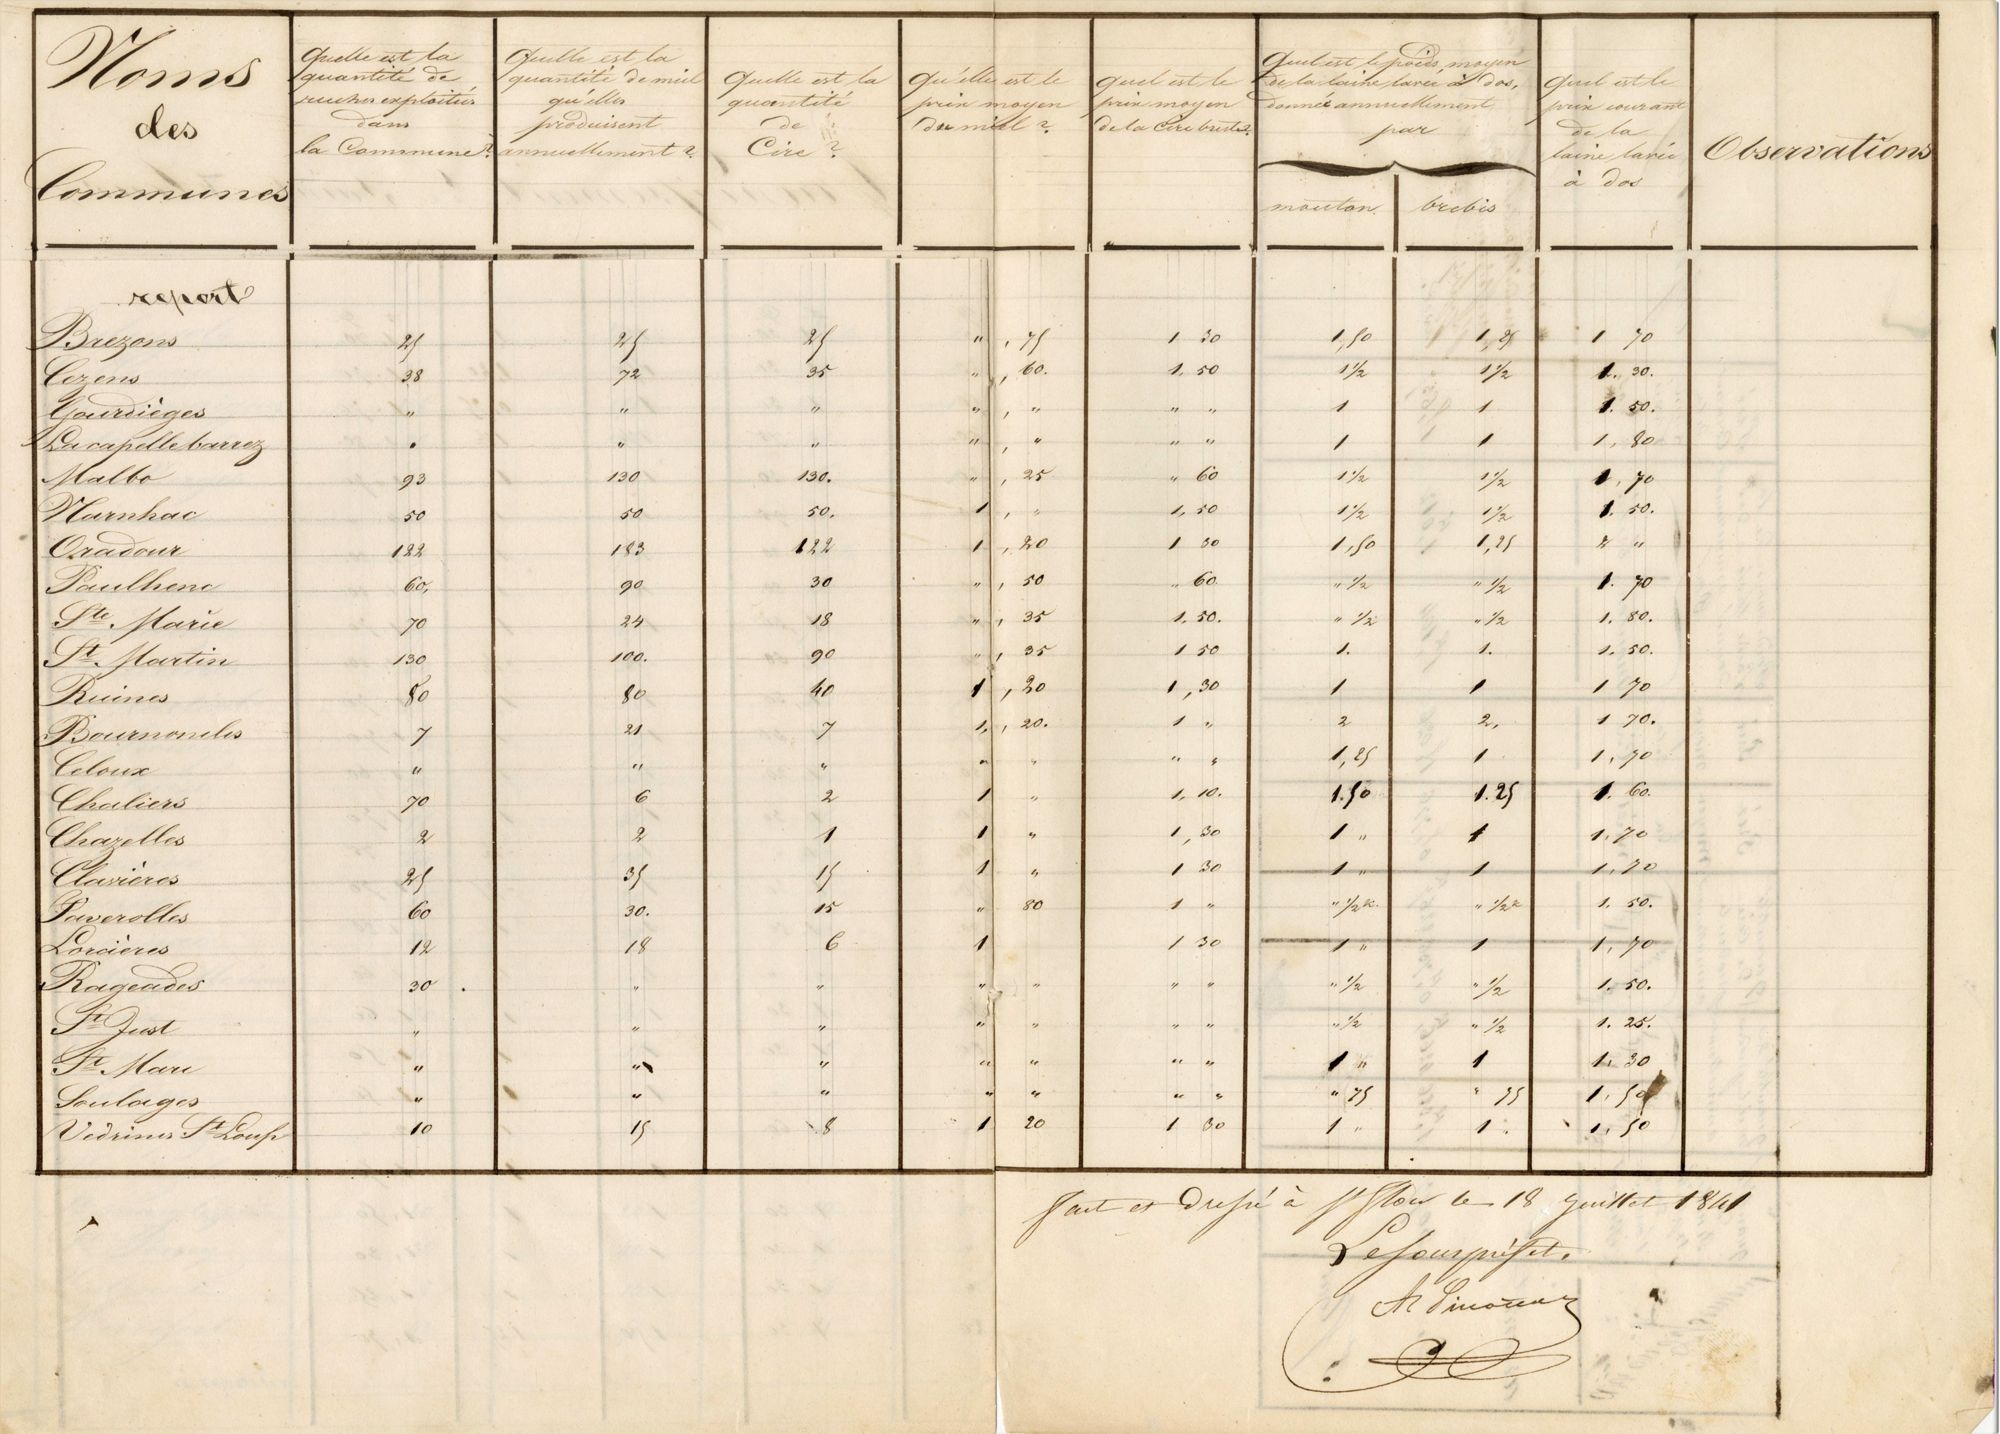 Noms
des
Communes
Quelle est la
quantité de
ruches exploitées
dans
la Commune?
Quelle est la
quantité de miel
qu'elles
produisent
annuellement?
Quelle est la
quantité
de
Cire?
Qu'elle est le
prix moyen
du miel?
Quel est le
prix moyen
de la Cire brute?
Quel est le poids moyen
de la laine lavée à dos,
donnée annuellement
par
mouton
brebis
Quel est le
prix courant
de la
laine lavée
à dos
Observations
report
Brezons 25 25 25 " , 75 1 30 1,50 1,25 1 70
Cezens 38 72 35 " , 60. 1. 50 1 1/2 1 1/2 1. 30.
Gourdièges " " " " , " " " 1 1 1. 50.
Lacapelle barrez " " " " , " " " 1 1 1, 80
Malbo 93 130 130. " , 25 " 60 1 1/2 1 1/2 1, 70
Narnhac 50 50 50. 1 , " 1, 50 1 1/2 1 1/2 1. 50.
Oradour 122 183 122 1 , 20 1 30 1,50 1,25 2 "
Paulhenc 60, 90 30 " , 50 " 60 " 1/2 " 1/2 1. 70
Ste. Marie 70 24 18 " , 35 1. 50. " 1/2 " 1/2 1. 80.
St. Martin 130 100. 90 " , 35 1 50 1. 1. 1. 50.
Ruines 80 80 40 1 , 20 1 , 30 1 1 1 70
Bournoncles 7 21 7 1, , 20. 1 " 2 2, 1 70.
Celoux " " " " " " " 1,25 1 1, 70
Chaliers 70 6 2 1 " 1, 10. 1.50 1.25 1. 60.
Chazelles 2 2 1 1 " 1, 30 1 " 1 1, 70
Clavières 25 35 15 1 " 1 30 1 " 1 1, 70
Faverolles 60 30. 15 " 80 1 " " 1/2 k. " 1/2 k 1. 50.
Lorcières 12 18 6 1 1 30 1 " 1 1, 70
Rageades 30 . " " " " " " " 1/2 " 1/2 1. 50.
St. Just " " " " " " " " 1/2 " 1/2 1. 25.
St. Marc " " " " " " " 1 " 1 1, 30
Soulages " " " " " " " " 75 " 75 1, 50
Vedrines St. Loup 10 15 8 1 20 1 30 1 " 1 . 1, 50
Fait et dressé à St Flour le 18 Juillet 1841
Le Souspréfet.